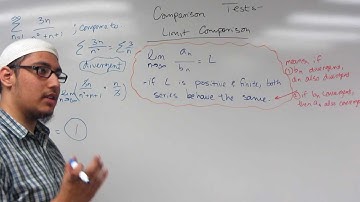 Comparison Tests-
Limit Comparison
Σ 3n ; compare to
n=1 n²+n+1
Σ 3n/n² = Σ 3/n
divergent
lim aₙ/bₙ = L
n→∞
-if L is positive & finite, both
series behave the same.
means, if
① bₙ diverges,
aₙ also diverges
② if bₙ converges,
then aₙ also converges
= 1